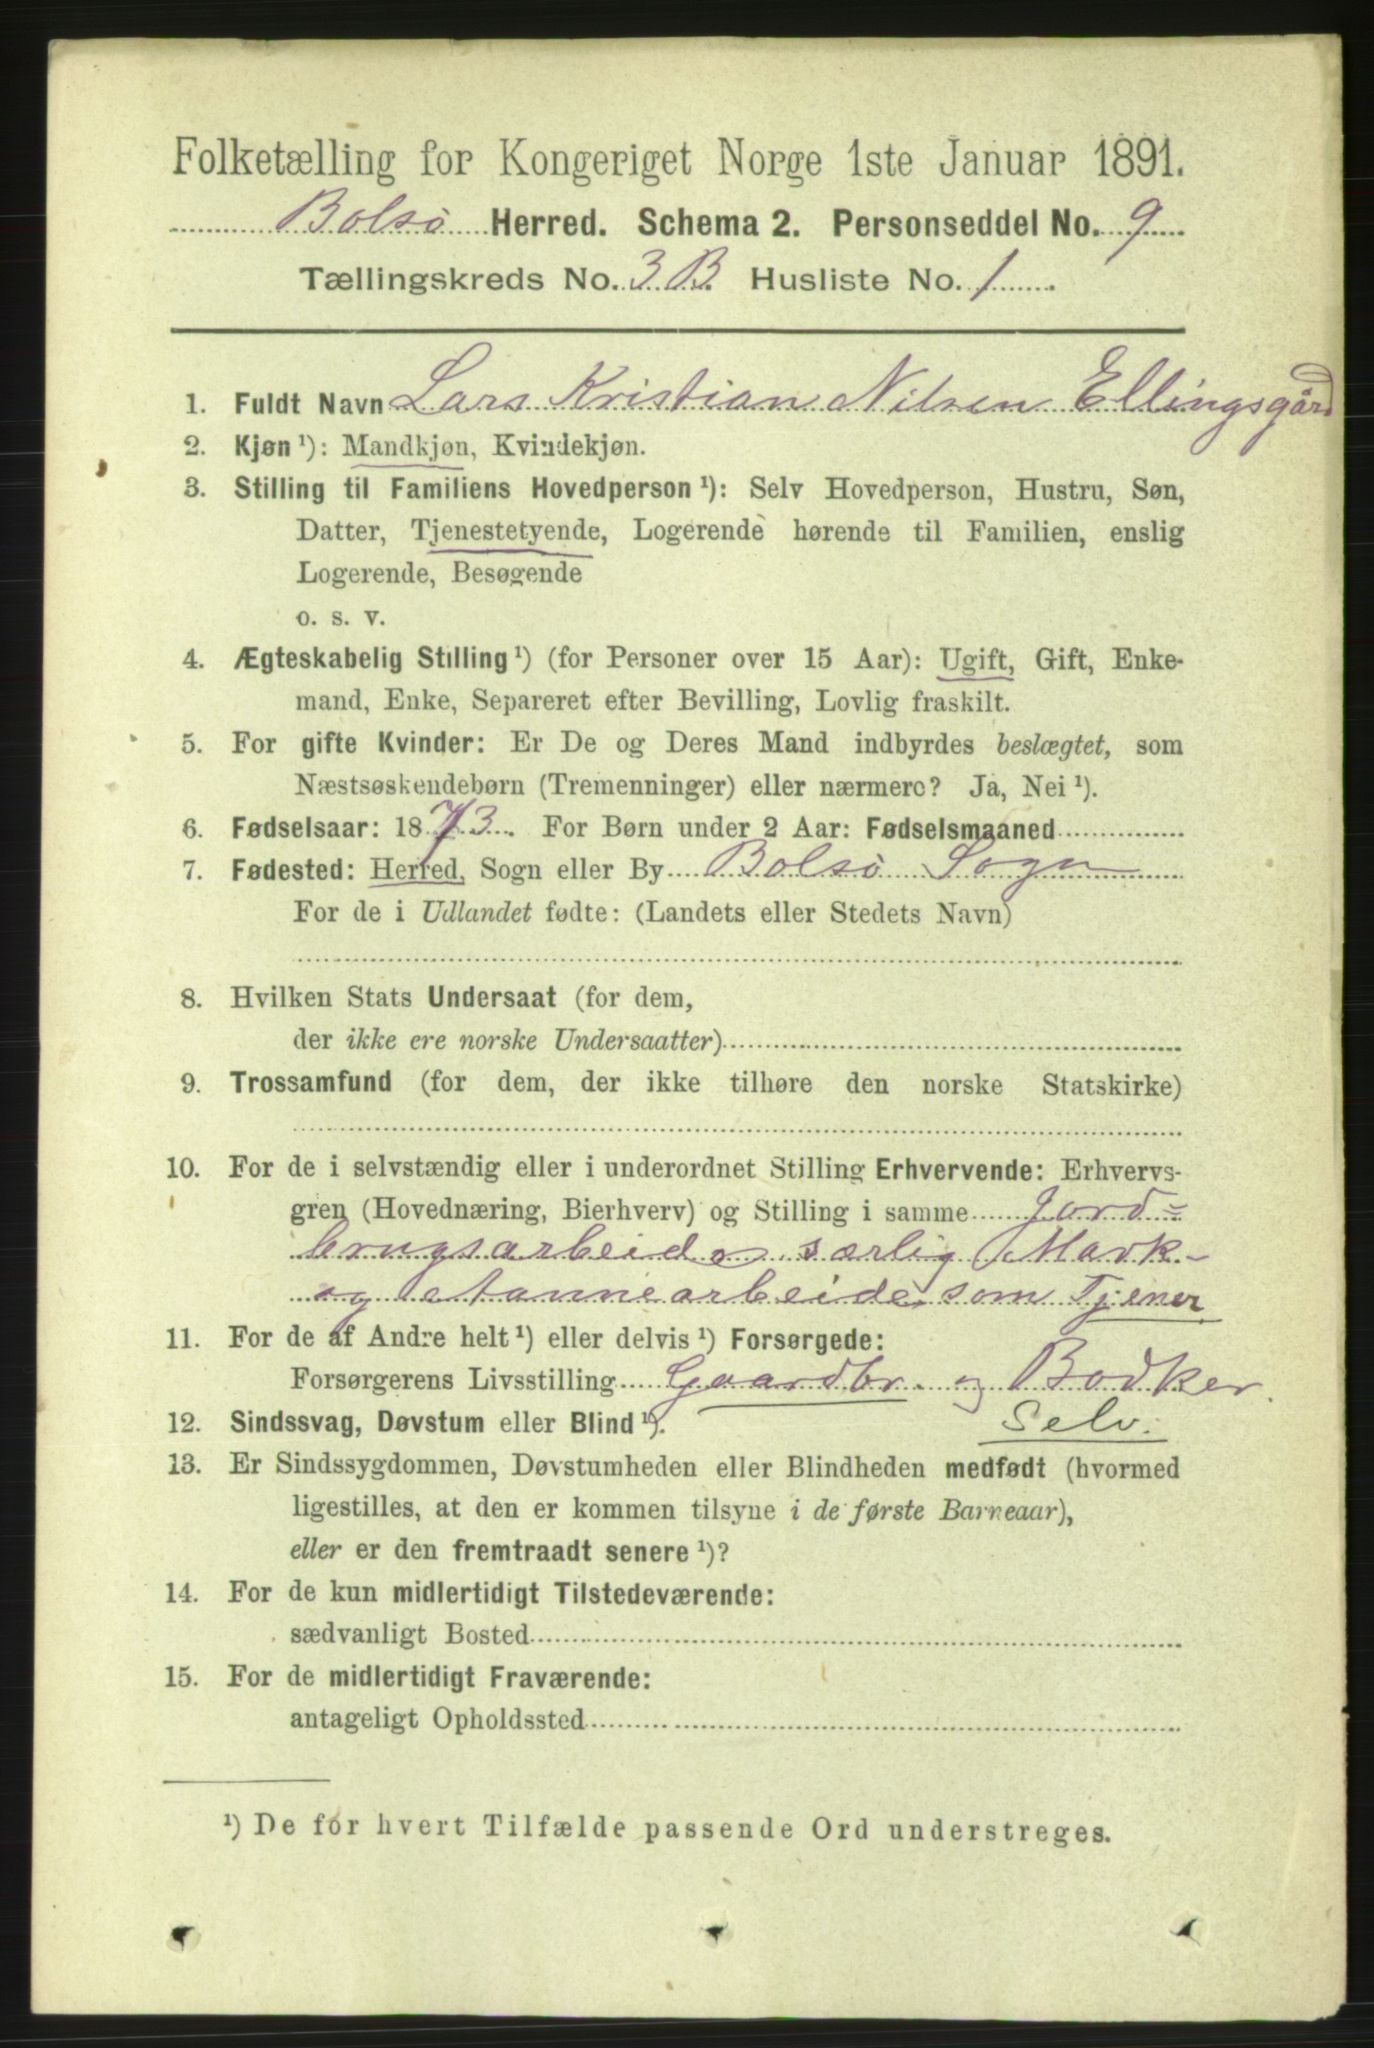 Folketælling for Kongeriget Norge 1ste Januar 1891.
Bolsø Herred. Schema 2. Personseddel No. 9
Tællingskreds No. 3 B. Husliste No. 1
1. Fuldt Navn Lars Kristian Nilsen Ellingsgård
2. Kjøn ¹): Mandkjøn, Kvindekjøn.
3. Stilling til Familiens Hovedperson ¹): Selv Hovedperson, Hustru, Søn,
Datter, Tjenestetyende, Logerende hørende til Familien, enslig
Logerende, Besøgende
o. s. v.
4. Ægteskabelig Stilling ¹) (for Personer over 15 Aar): Ugift, Gift, Enke-
mand, Enke, Separeret efter Bevilling, Lovlig fraskilt.
5. For gifte Kvinder: Er De og Deres Mand indbyrdes beslægtet, som
Næstsøskendebørn (Tremenninger) eller nærmere? Ja, Nei ¹).
6. Fødselsaar: 1873. For Børn under 2 Aar: Fødselsmaaned
7. Fødested: Herred, Sogn eller By Bolsø Sogn
For de i Udlandet fødte: (Landets eller Stedets Navn)
8. Hvilken Stats Undersaat (for dem,
der ikke ere norske Undersaatter)
9. Trossamfund (for dem, der ikke tilhøre den norske Statskirke)
10. For de i selvstændig eller i underordnet Stilling Erhvervende: Erhvervs-
gren (Hovednæring, Bierhverv) og Stilling i samme Jord=
brugsarbeide særlig Mark-
og som Tjener
11. For de af Andre helt ¹) eller delvis ¹) Forsørgede:
Forsørgerens Livsstilling Gaardbr. og Bødker.
12. Sindssvag, Døvstum eller Blind ¹). Selv.
13. Er Sindssygdommen, Døvstumheden eller Blindheden medfødt (hvormed
ligestilles, at den er kommen tilsyne i de første Barneaar),
eller er den fremtraadt senere ¹)?
14. For de kun midlertidigt Tilstedeværende:
sædvanligt Bosted
15. For de midlertidigt Fraværende:
antageligt Opholdssted
¹) De for hvert Tilfælde passende Ord understreges.